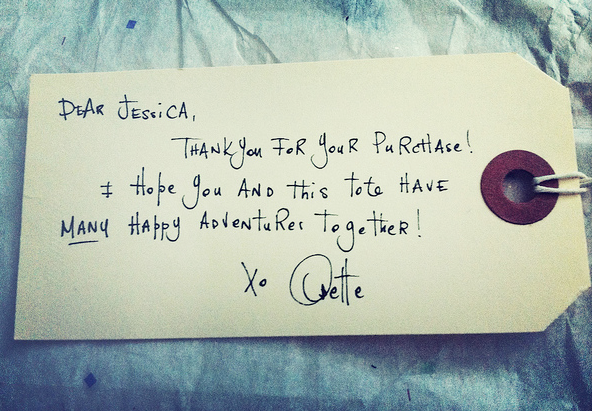 DEAR JESSiCA,
THANK you FOR youR PuRcHAse!
I Hope you AND this tote HAVE
MANY HAppy ADVENtuRes together!
Xo Ovette